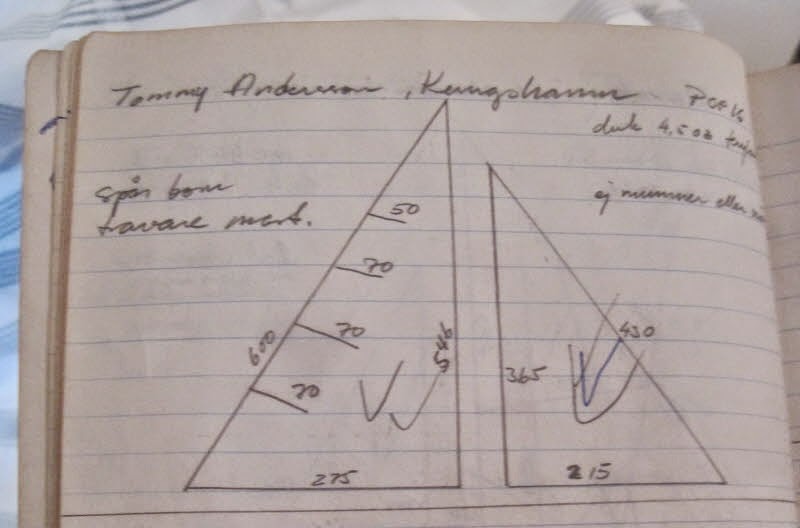 Tommy Andersson, Kungshamn
duk 4,5 oz
spår bom
travare mast.
ej nummer eller
50
70
70
600
70
365
430
275
215